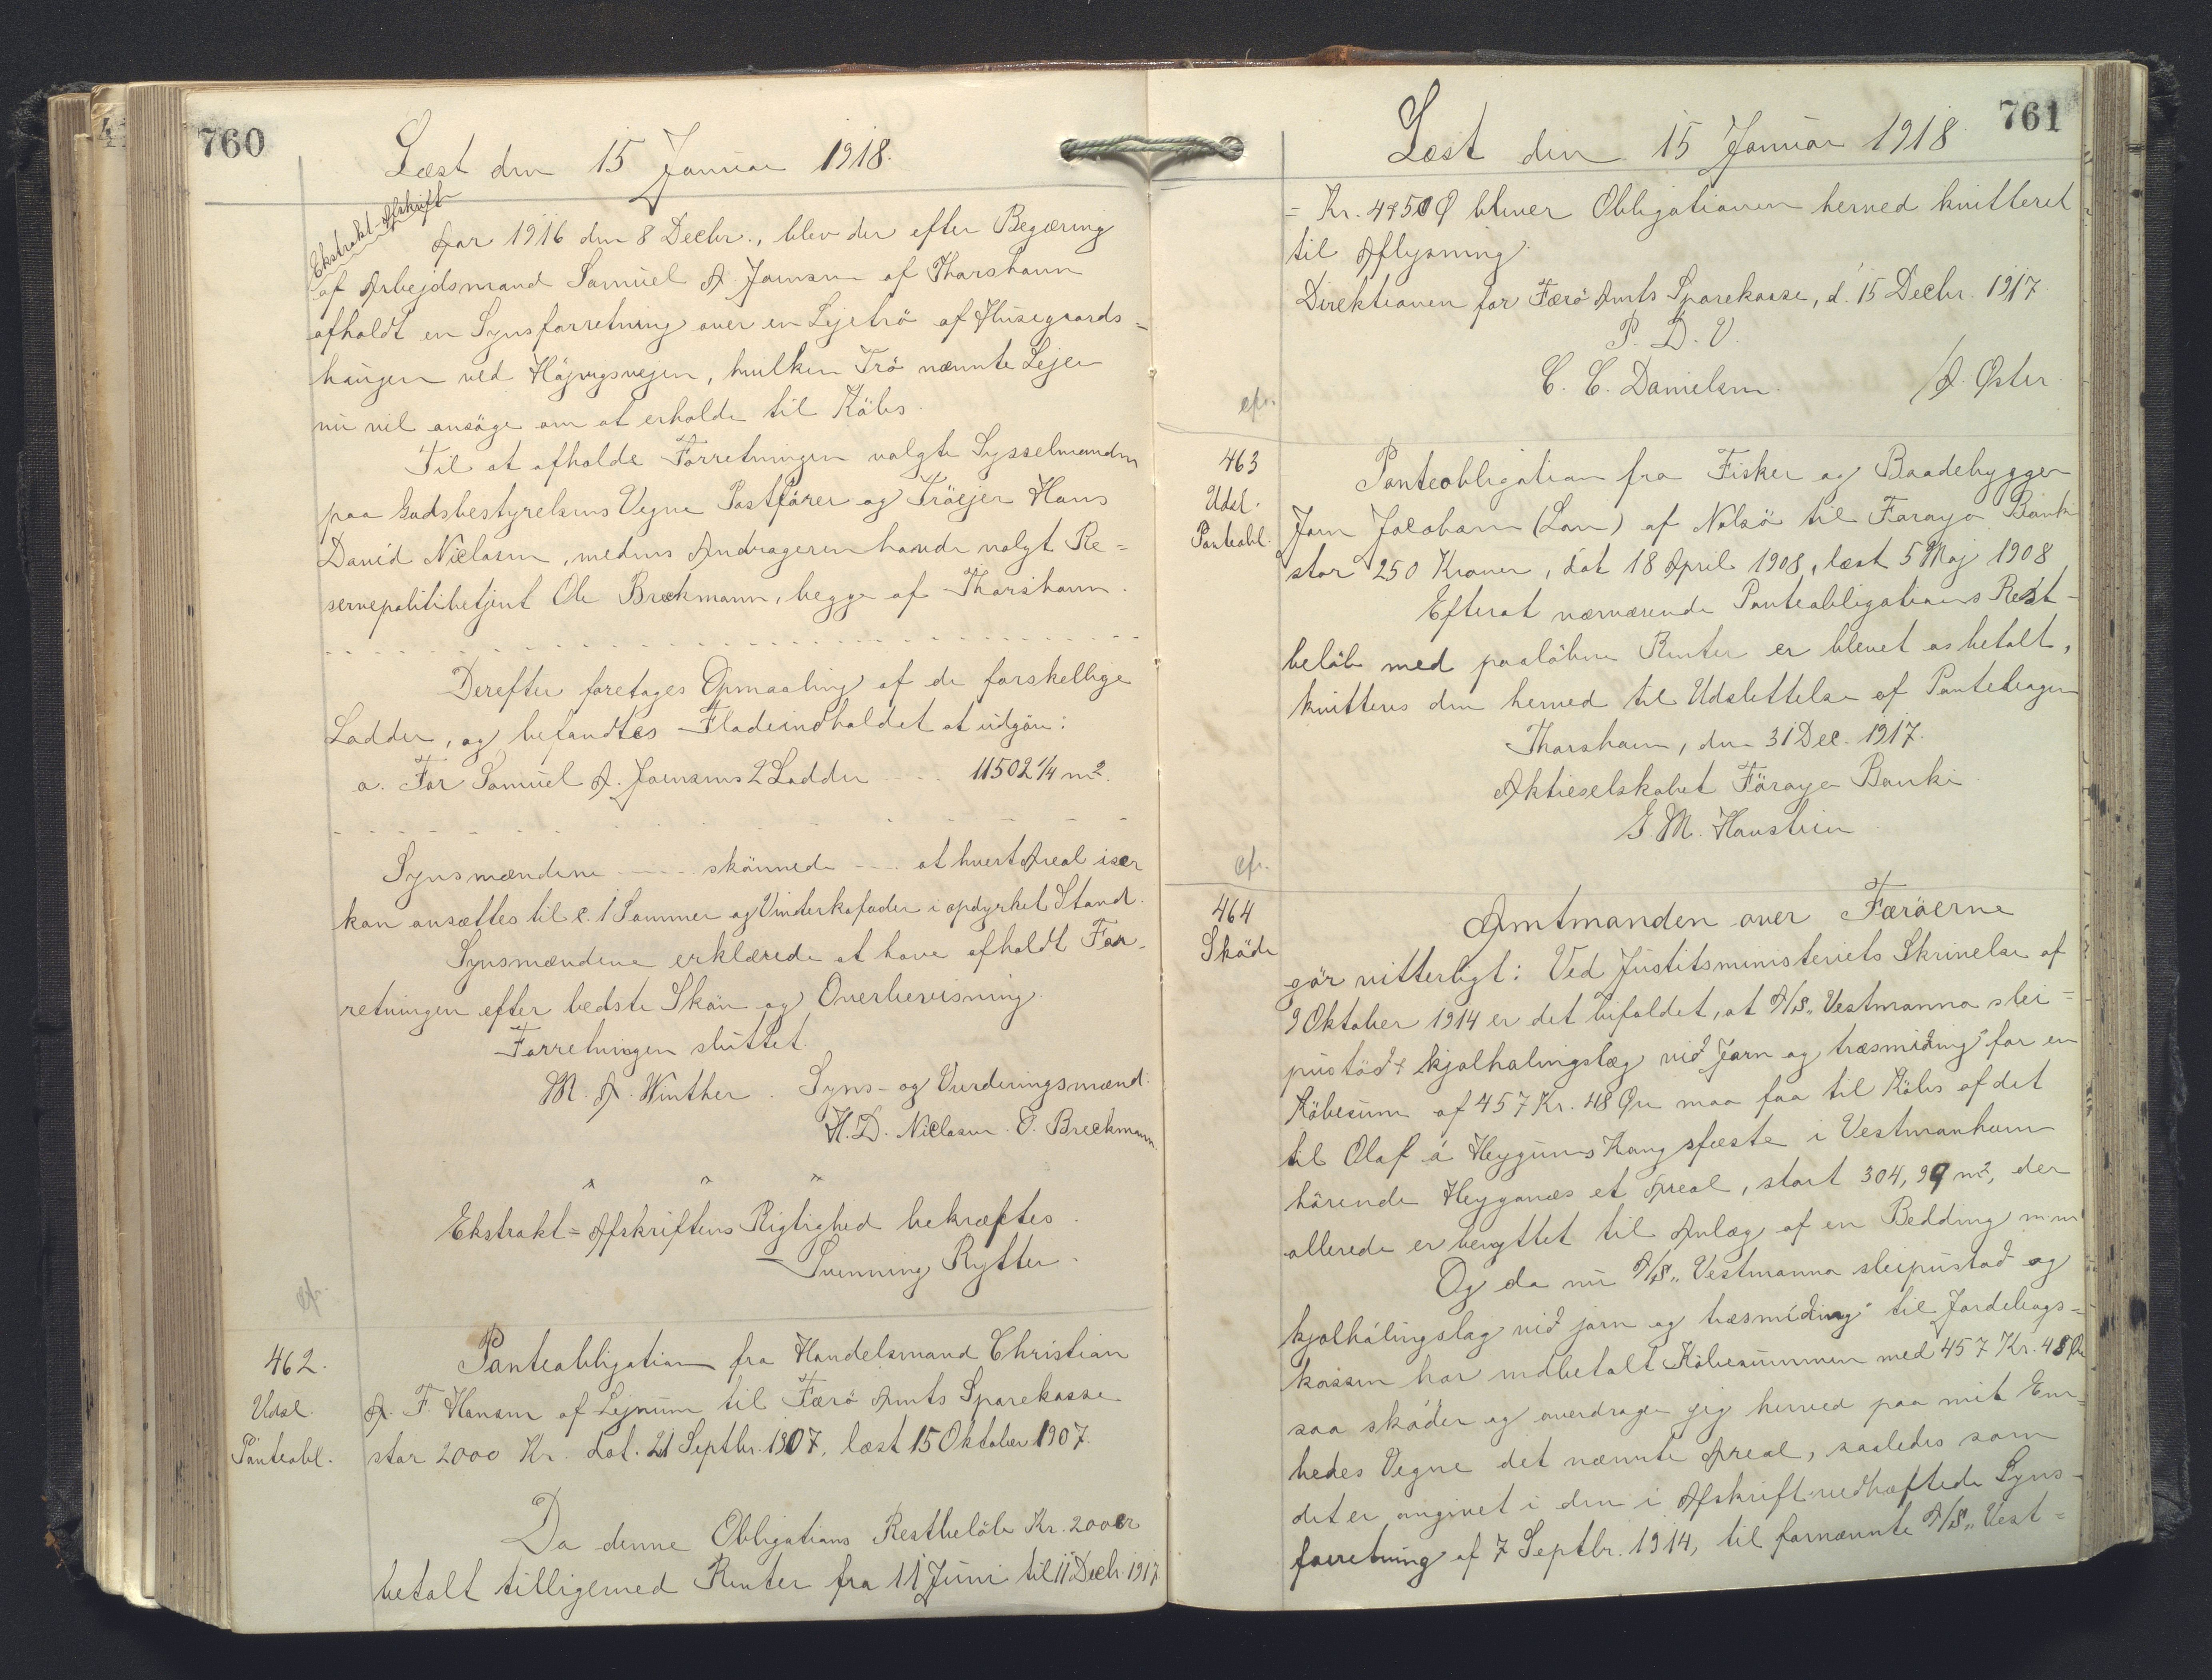 760
Læst den 15 Januar 1918.
Ekstrakt-Afskrift
Aar 1916 den 8 Decbr., blev der efter Begæring
af Arbejdsmand Samuel A. Joensen af Thorshavn
afholdt en Synsforretning over en Lejetrö af Husegaards-
haugen ved Höjvigsvejen, hvilken Trö nævnte Lejer
nu vil ansöge om at erholde til Köbs.
Til at afholde Forretningen valgte Sysselmanden
paa Godsbestyrelsens Vegne Postförer og Tröejer Hans
David Niclasen, medens Andrageren havde valgt Re=
servepolitibetjent Ole Breckmann, begge af Thorshavn.
Derefter foretages Opmaaling af de forskellige
Lodder, og befandtes Fladeindholdet at udgöre:
a. For Samuel A. Joensens 2 Lodder .... 11502 1/4 m².
Synsmændene ---- skönnede --- at hvert Areal især
kan ansættes til c. 1 Sommer og Vinterkofoder i opdyrket Stand.
Synsmændene erklærede at have afholdt For-
retningen efter bedste Skön og Overbevisning.
Forretningen sluttet.
M. A. Winther. Syns- og Vurderingsmænd:
H. D. Niclasen. O. Breckmann.
Ekstrakt=Afskriftens Rigtighed bekræftes.
Svenning Rytter.
cfr.
462.
Udsl.
Panteobl.
Panteobligation fra Handelsmand Christian
A. F. Hansen af Lejnum til Færö Amts Sparekasse
stor 2000 Kr. dat. 21 Septbr. 1907, læst 15 Oktober 1907.
Da denne Obligations Restbelöb Kr. 200 er
betalt tilligemed Renter fra 11 Juni til 11 Decbr. 1917
761
Læst den 15 Januar 1918
= Kr. 4950 Ø bliver Obligationen herved kvitteret
til Aflysning.
Direktionen for Færö Amts Sparekasse, d. 15 Decbr. 1917.
P. D. V.
C. C. Danielsen. / A. Øster.
cfr.
463
Udsl.
Panteobl.
Panteobligation fra Fisker og Baadebygger
Joen Jacobsen (Lon) af Nolsö til Föroya Banki
stor 250 Kroner, dat 18 April 1908, læst 5 Maj 1908
Efterat nærværende Panteobligations Rest-
belöb med paalöbne Renter er blevet os betalt,
kvitteres den herved til Udslettelse af Pantebogen
Thorshavn, den 31 Dec. 1917.
Aktieselskabet Föroya Banki
G. M. Haustein
cfr.
464
Sköde
Amtmanden over Færöerne
gör vitterligt: Ved Justitsministeriets Skrivelse af
9 Oktober 1914 er det bifaldet, at A/S „Vestmanna slei=
pistöð & kjølhalingslag við jarn og træsmiðing" for en
Köbesum af 457 Kr. 48 Øre maa faa til Köbs af det
til Olaf á Heygums Kongsfæste i Vestmanhavn
hörende Heyganæs et Areal, stort 304,99 m², der
allerede er benyttet til Anlæg af en Bedding m.m.
Og da nu A/S „Vestmanna sleipistað og
kjølhálingslag við jarn og træsmiðing" til Jordebogs=
kassen har indbetalt Köbesummen med 457 Kr. 48 Øre
saa sköder og overdrager jeg herved paa mit Em-
bedes Vegne det nævnte Areal, saaledes som
det er angivet i den i Afskrift vedhæftede Syns-
forretning af 7 Septbr. 1914, til fornævnte A/S „Vest=